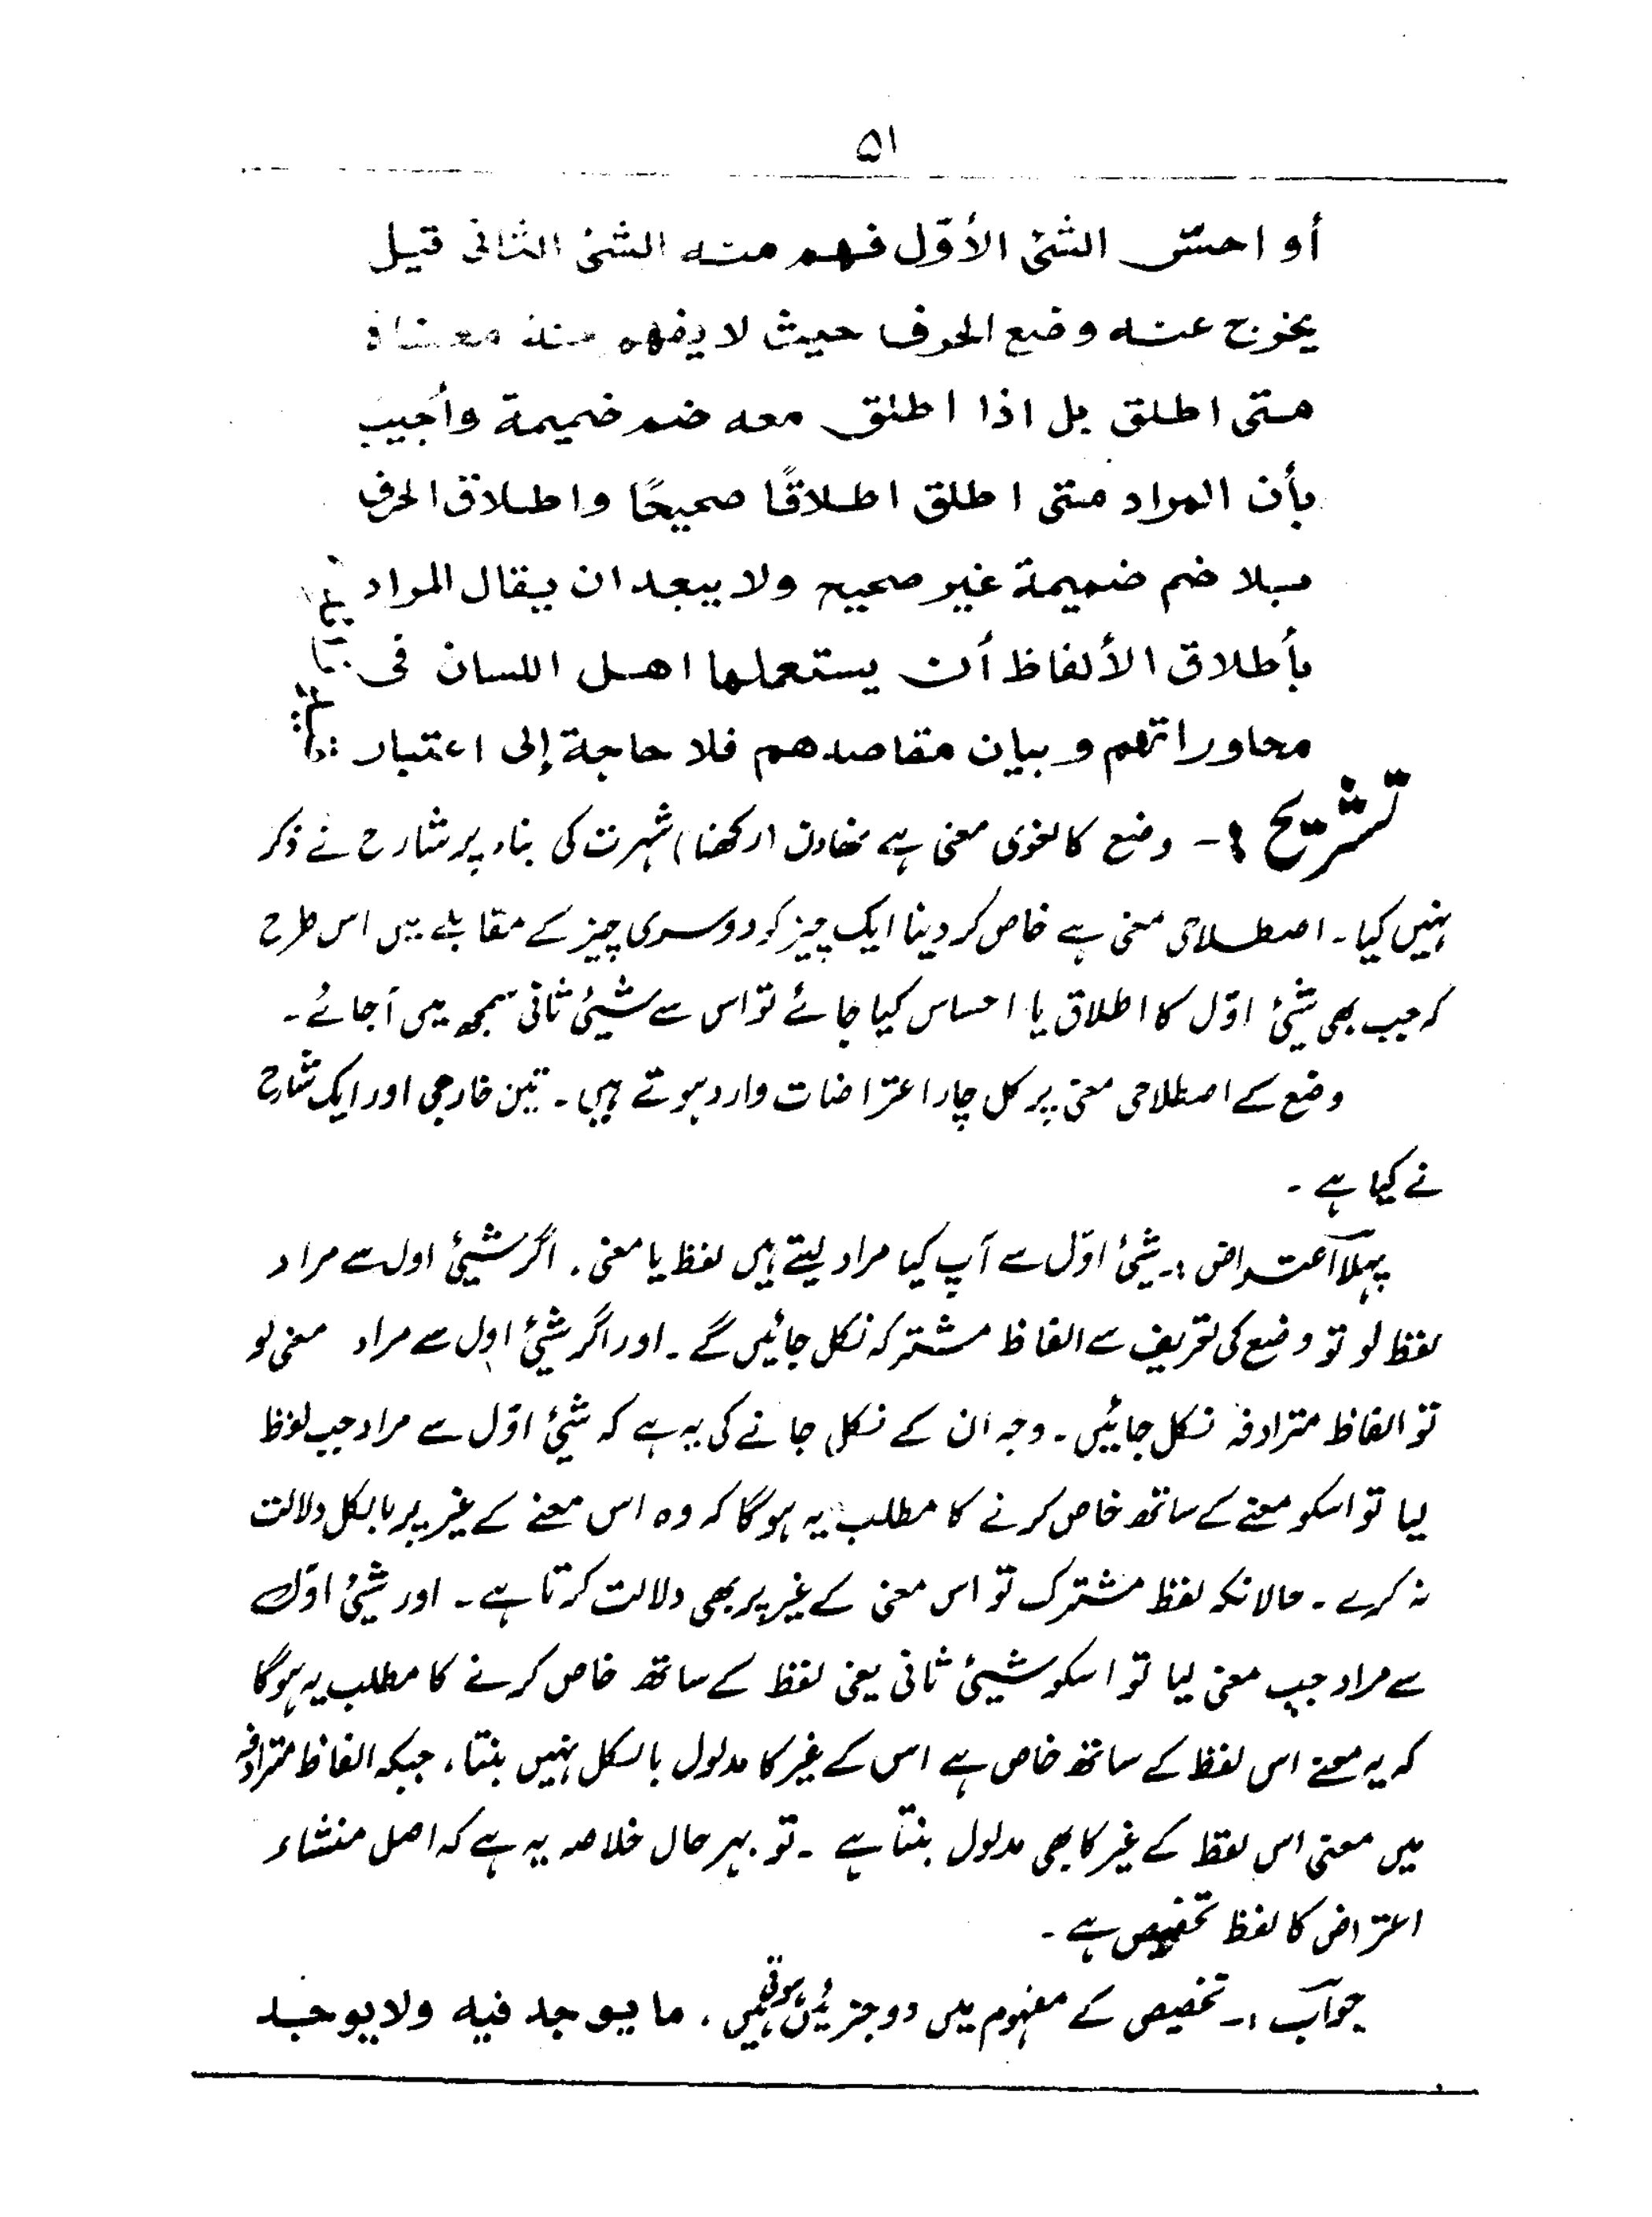 ۵۱
أو احسّ الشئ الأوّل فهم منه الشئ الثانى قيل
يخرج عنه وضع الحرف حيث لا يفهم منه معناه
متى اطلق بل اذا اطلق معه ضم ضميمة وأجيب
بأن المراد متى اطلق اطلاقًا صحيحًا واطلاق الحرف
بلا ضم ضميمة غير صحيح ولا يبعد ان يقال المراد
بأطلاق الألفاظ أن يستعملها اهل اللسان فى
محاوراتهم و بيان مقاصدهم فلا حاجة إلى اعتبار
تشریح :- وضع کا لغوی معنی ہے نھادن (رکھنا) شہرت کی بناء پر شارح نے ذکر
نہیں کیا۔ اصطلاحی معنی ہے خاص کر دینا ایک چیز کو دوسری چیز کے مقابلے میں اس طرح
کہ جب بھی شیٔ اوّل کا اطلاق یا احساس کیا جائے تو اس سے شیئ ثانی سمجھ میں آجائے۔
وضع کے اصطلاحی معنی پر کل چار اعتراضات وارد ہوتے ہیں۔ تین خارجی اور ایک شارح
نے کیا ہے۔
پہلا اعتراض :۔ شیٔ اوّل سے آپ کیا مراد لیتے ہیں لفظ یا معنی۔ اگر شیئ اول سے مراد
لفظ لو تو وضع کی تعریف سے الفاظ مشترکہ نکل جائیں گے۔ اور اگر شیٔ اول سے مراد معنی لو
تو الفاظ مترادفہ نکل جائیں۔ وجہ ان کے نکل جانے کی یہ ہے کہ شیٔ اوّل سے مراد جب لفظ
لیا تو اسکو معنے کے ساتھ خاص کرنے کا مطلب یہ ہوگا کہ وہ اس معنے کے غیر پر بالکل دلالت
نہ کرے۔ حالانکہ لفظ مشترک تو اس معنی کے غیر پر بھی دلالت کرتا ہے۔ اور شیٔ اوّل
سے مراد جب معنی لیا تو اسکو شیئ ثانی یعنی لفظ کے ساتھ خاص کرنے کا مطلب یہ ہوگا
کہ یہ معنے اس لفظ کے ساتھ خاص ہے اس کے غیر کا مدلول بالکل نہیں بنتا، جبکہ الفاظ مترادفہ
میں معنی اس لفظ کے غیر کا بھی مدلول بنتا ہے۔ تو بہر حال خلاصہ یہ ہے کہ اصل منشاء
اعتراض کا لفظ تخصیص ہے۔
جواب :۔ تخصیص کے مفہوم میں دو جزئیں ہوتی ہیں، ما يوجد فيه ولا يوجد